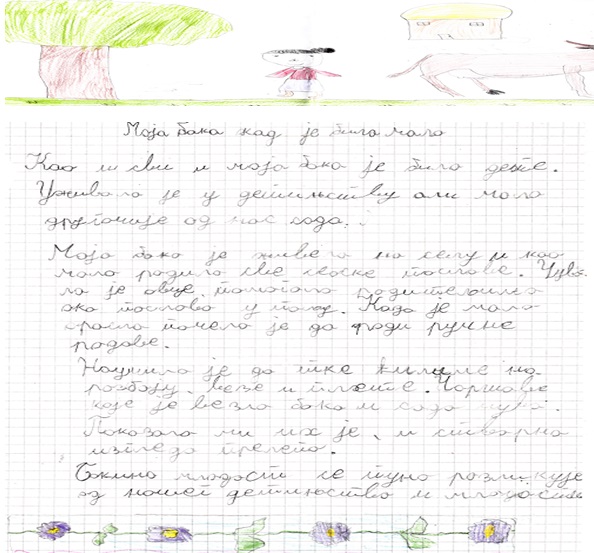 Моја бака кад је била мала
Као и сви и моја бака је била дете.
Уживала је у детињству али мало
другачије од нас сада.
Моја бака је живела на селу и као
мала радила све сеоске послове. Чува-
ла је овце, помагала родитељима
око послова у пољу. Када је мало
срасла почела је да ради ручне
радове.
Научила је да тке ћилиме на
разбоју, везе и плете. Чаршаве
које је везла бака и сада чува.
Показала ми их је, и стварно
изгледа прелепо.
Бакина младост се пуно разликује
од нашег детињства и младости